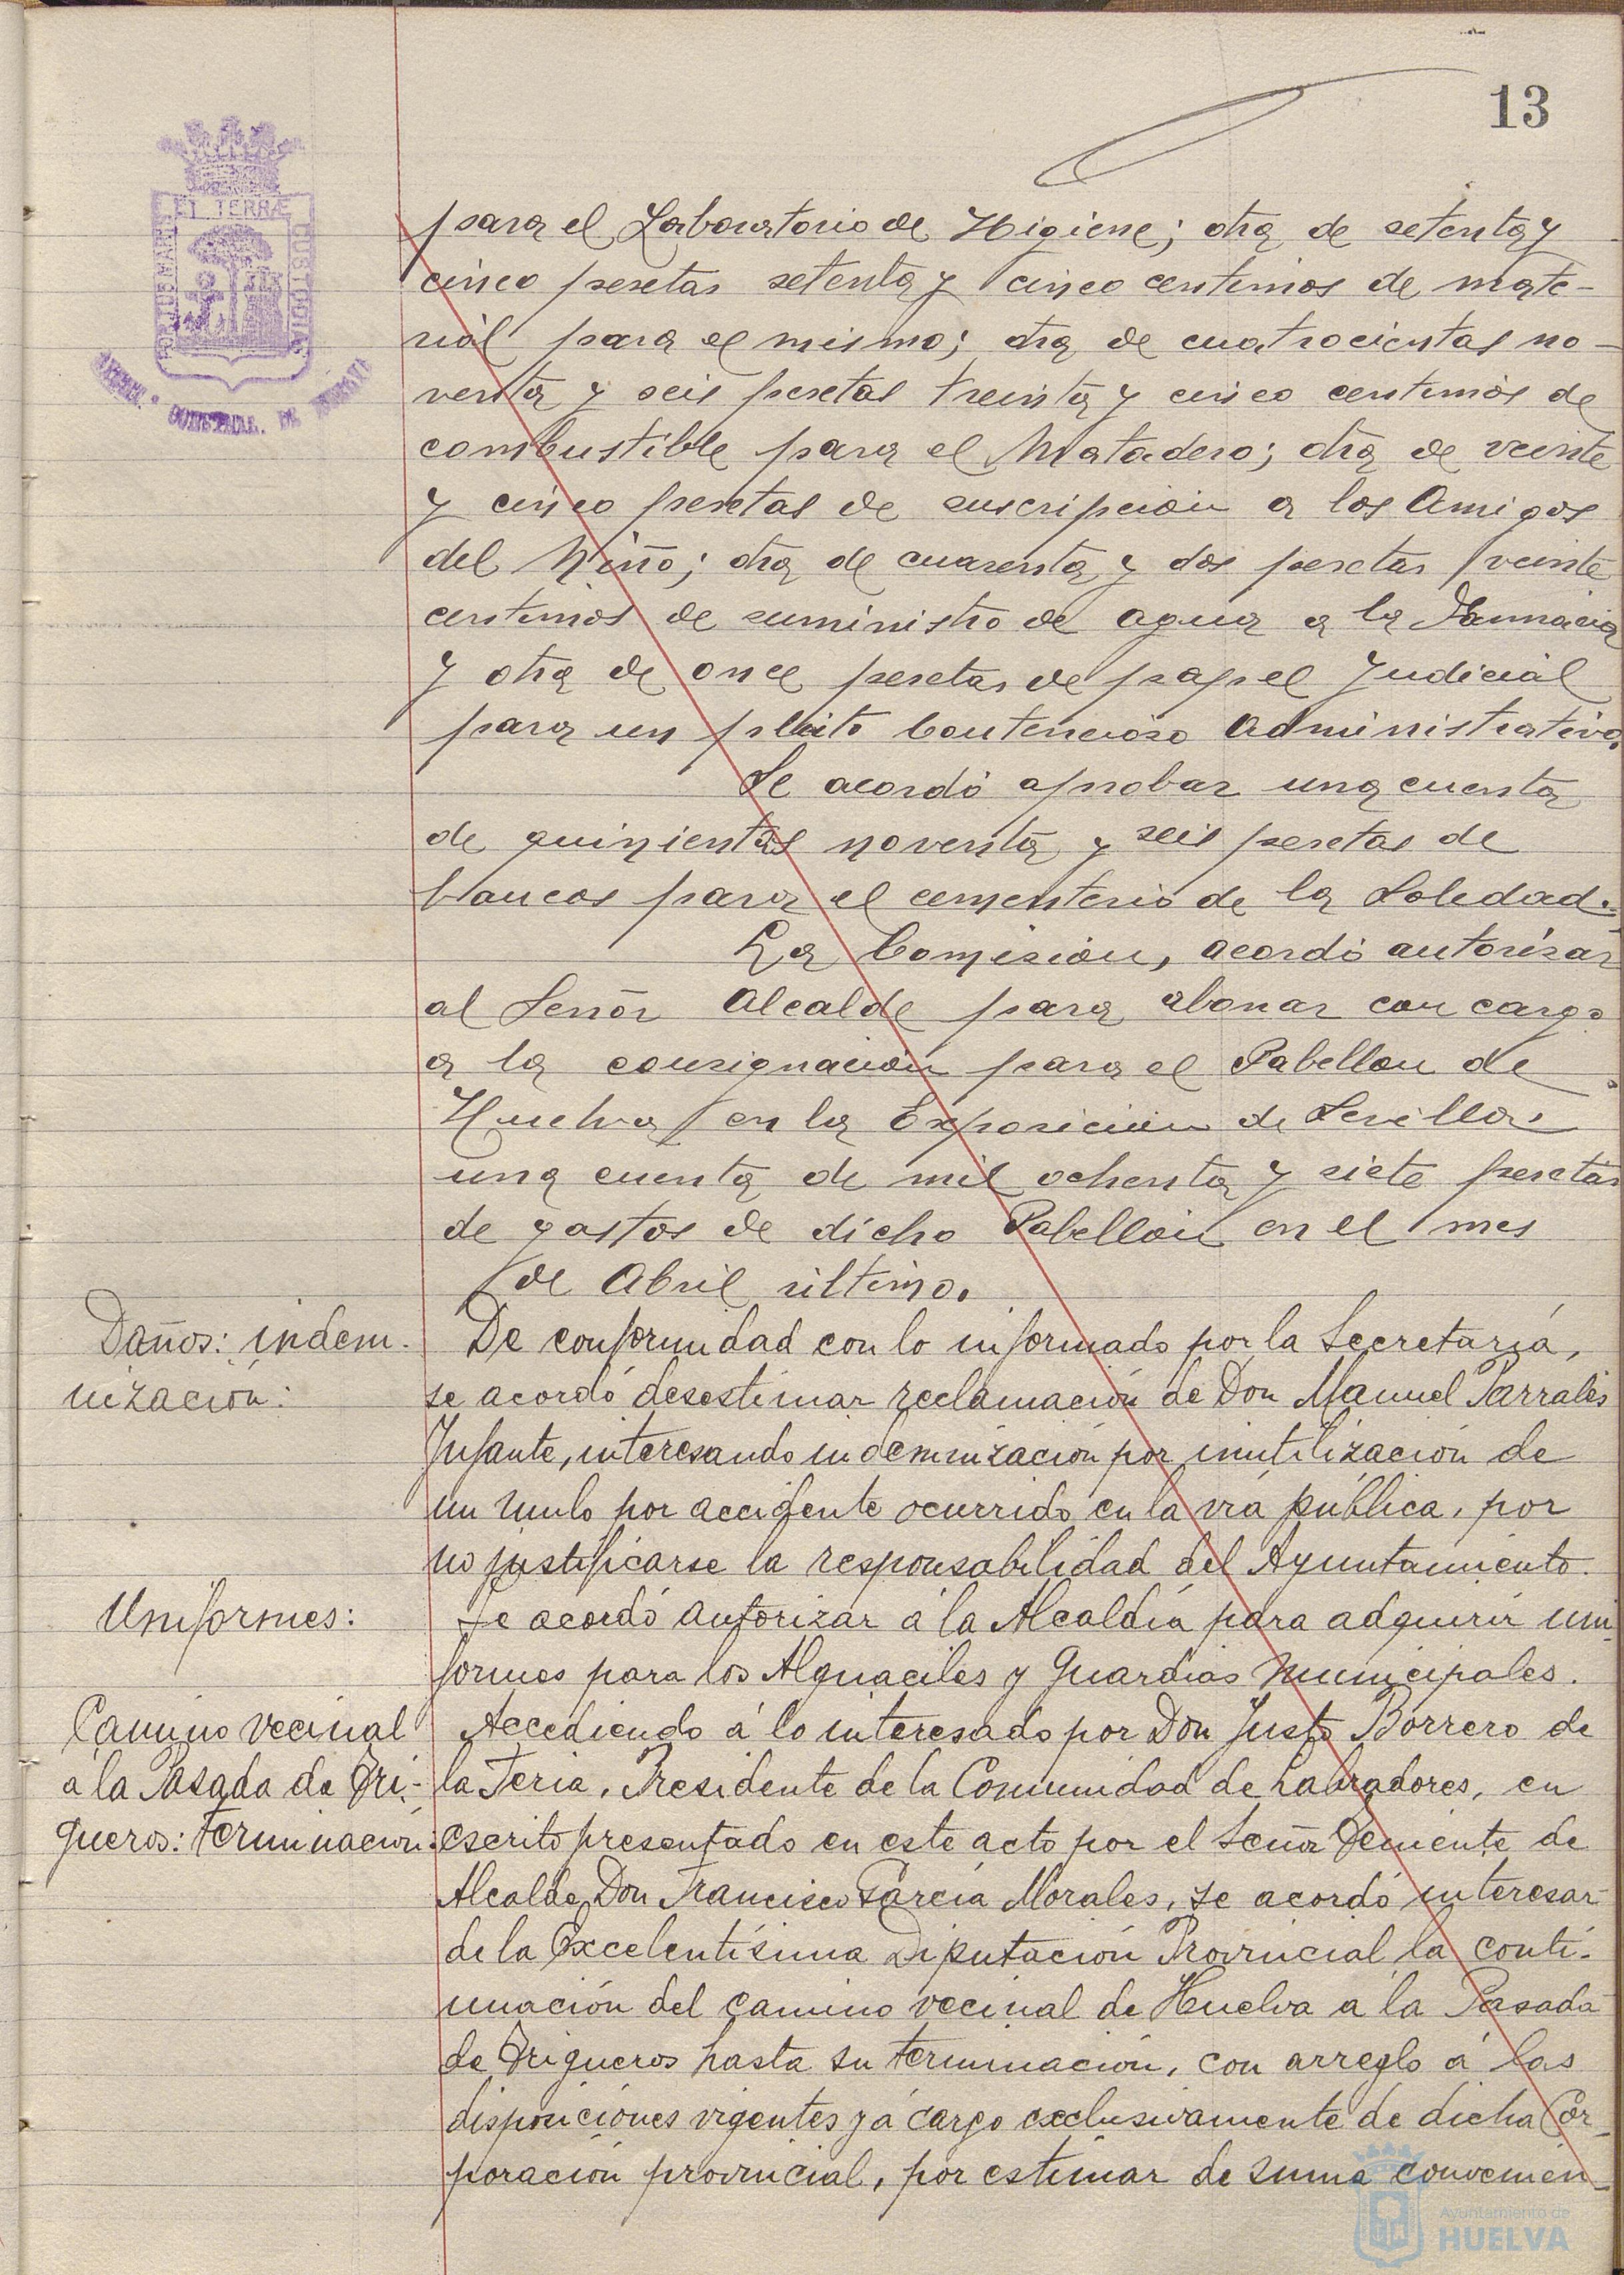 13
PORTUS MARIS
ET TERRÆ
CUSTODIA
DE HUELVA
para el Laboratorio de Higiene; otra de setenta y
cinco pesetas setenta y cinco centimos de mate-
rial para el mismo; otra de cuatrocientas no-
venta y seis pesetas treinta y cinco centimos de
combustible para el Matadero; otra de veinte
y cinco pesetas de suscripcion a los Amigos
del Niño; otra de cuarenta y dos pesetas veinte
centimos de suministro de agua a la Farmacia
y otra de once pesetas de papel Judicial
para un pleito Contencioso Administrativo.
Se acordó aprobar una cuenta
de quinientas noventa y seis pesetas de
bancos para el cementerio de la Soledad.
La Comision, acordó autorisar
al Señor Alcalde para abonar con cargo
a la consignacion para el Pabellon de
Huelva en la Exposicion de Sevilla
una cuenta de mil ochenta y siete pesetas
de gastos de dicho Pabellon en el mes
de Abril ultimo.
Daños: indem-
nización:
De conformidad con lo informado por la Secretaría,
se acordó desestimar reclamación de Don Manuel Parrales
Infante, interesando indemnización por inutilización de
un mulo por accidente ocurrido en la vía pública, por
no justificarse la responsabilidad del Ayuntamiento.
Uniformes:
Se acordó autorizar á la Alcaldía para adquirir uni-
formes para los Alguaciles y Guardias municipales.
Camino vecinal
a la Pasada de Tri-
gueros: terminación:
Accediendo á lo interesado por Don Justo Borrero de
la Feria, Presidente de la Comunidad de Labradores, en
escrito presentado en este acto por el Señor Teniente de
Alcalde Don Francisco García Morales, se acordó interesar
de la Excelentísima Diputación Provincial la conti-
nuación del camino vecinal de Huelva a la Pasada
de Trigueros hasta su terminación, con arreglo á las
disposiciones vigentes y á cargo exclusivamente de dicha Cor-
poración provincial, por estimar de suma convenien-
Ayuntamiento de
HUELVA